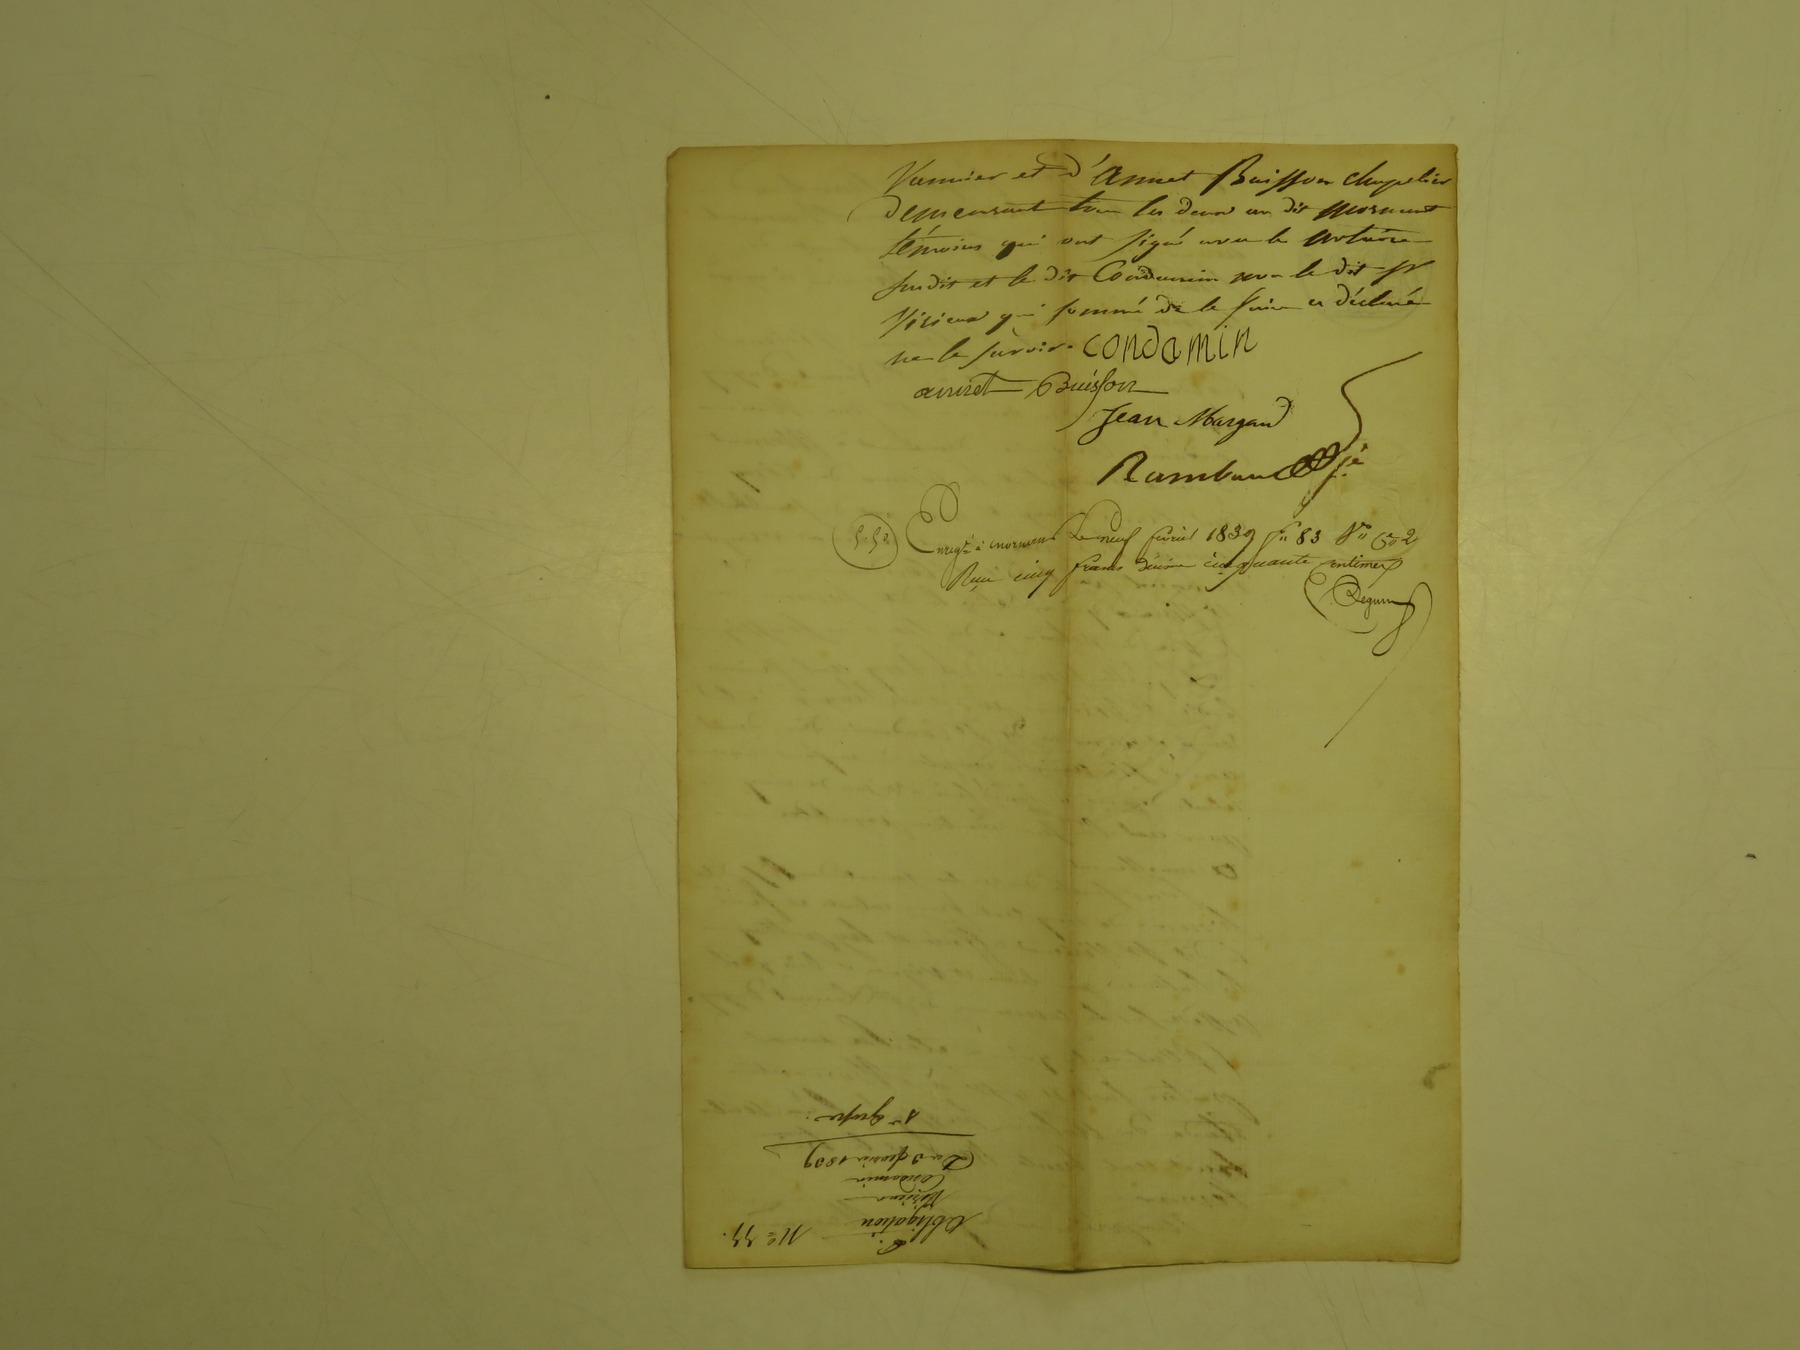 Vannier et d'Annet Buisson chapelier
demeurant tous les deux au dit Mornant
témoins qui ont signé avec le notaire
susdit et le dit Condamin non le dit sr
Virieux qui sommé de le faire a déclaré
ne le savoir. condamin
annet Buisson
Jean Margand
Rambaud
5.50 Enregté à mornant Le neuf février 1839 fo 83 Vo Co 2
Reçu cinq francs décime cinquante centimes
Deguin
No 37.
Obligation
Virieux
Condamin
Du 3 février 1839
1re Grosse